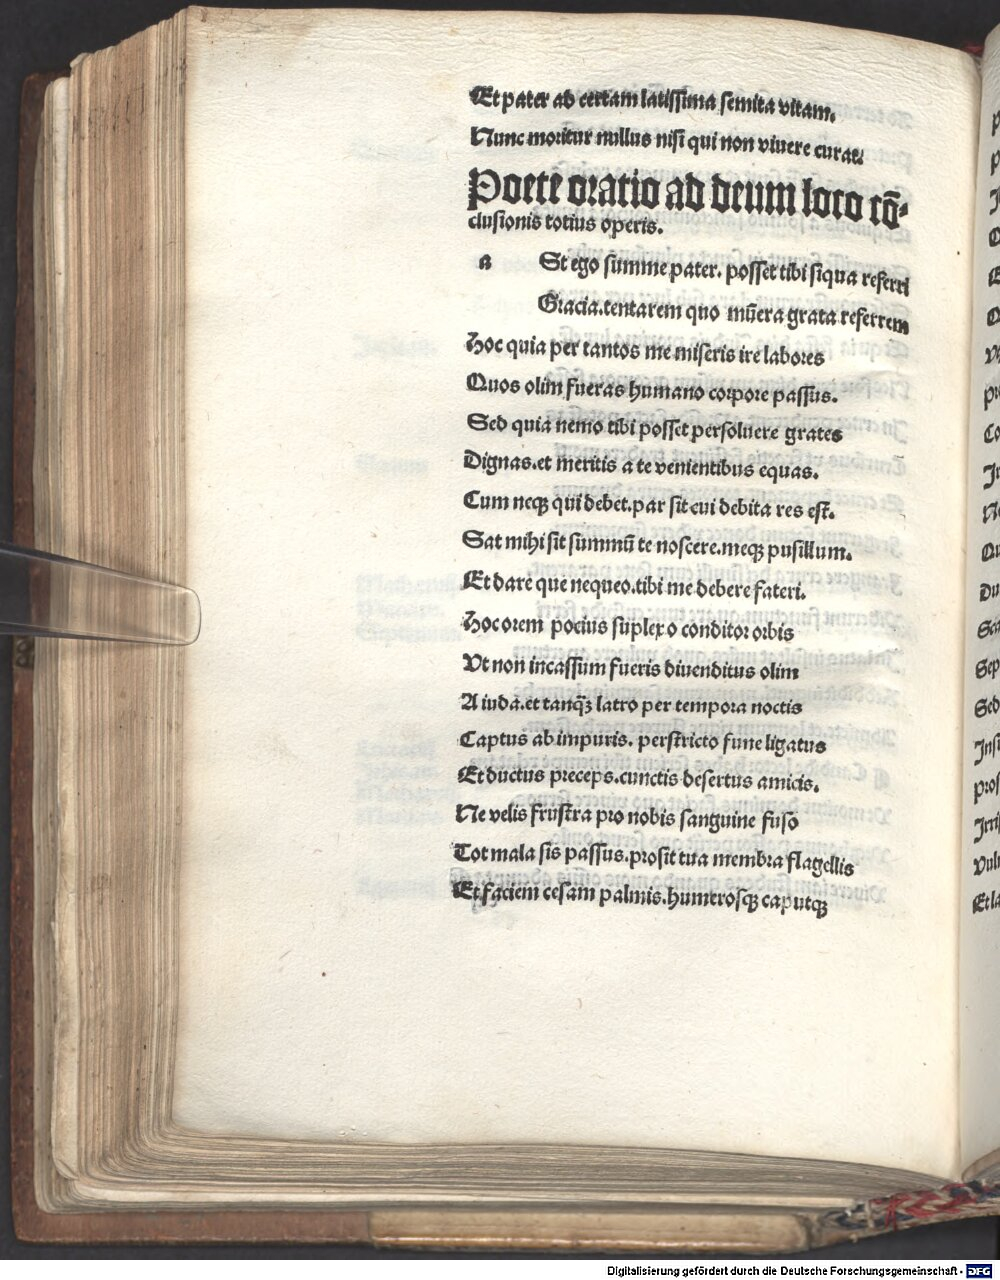 Et pater ad certam latissima semita vitam.
Nunc moritur nullus nisi qui non viuere curat.
Poete oratio ad deum loco cō-
clusionis totius operis.
a St ego summe pater. posset tibi siqua referri
Gracia.tentarem quo mūera grata referrem
Hoc quia per tantos me miseris ire labores
Quos olim fueras humano corpore passus.
Sed quia nemo tibi posset persoluere grates
Dignas.et meritis a te venientibus equas.
Cum neqꝫ qui debet.par sit cui debita res est.
Sat mihi sit summū te noscere.meqꝫ pusillum.
Et dare que nequeo.tibi me debere fateri.
Hoc orem pocius suplex o conditor orbis
Vt non incassum fueris diuenditus olim
A iuda.et tanqꝫ latro per tempora noctis
Captus ab impuris. perstricto fune ligatus
Et ductus preceps.cunctis desertus amicis.
Ne velis frustra pro nobis sanguine fuso
Tot mala sis passus.prosit tua membra flagellis
Et faciem cesam palmis.humerosqꝫ caputqꝫ
Digitalisierung gefördert durch die Deutsche Forschungsgemeinschaft - DFG